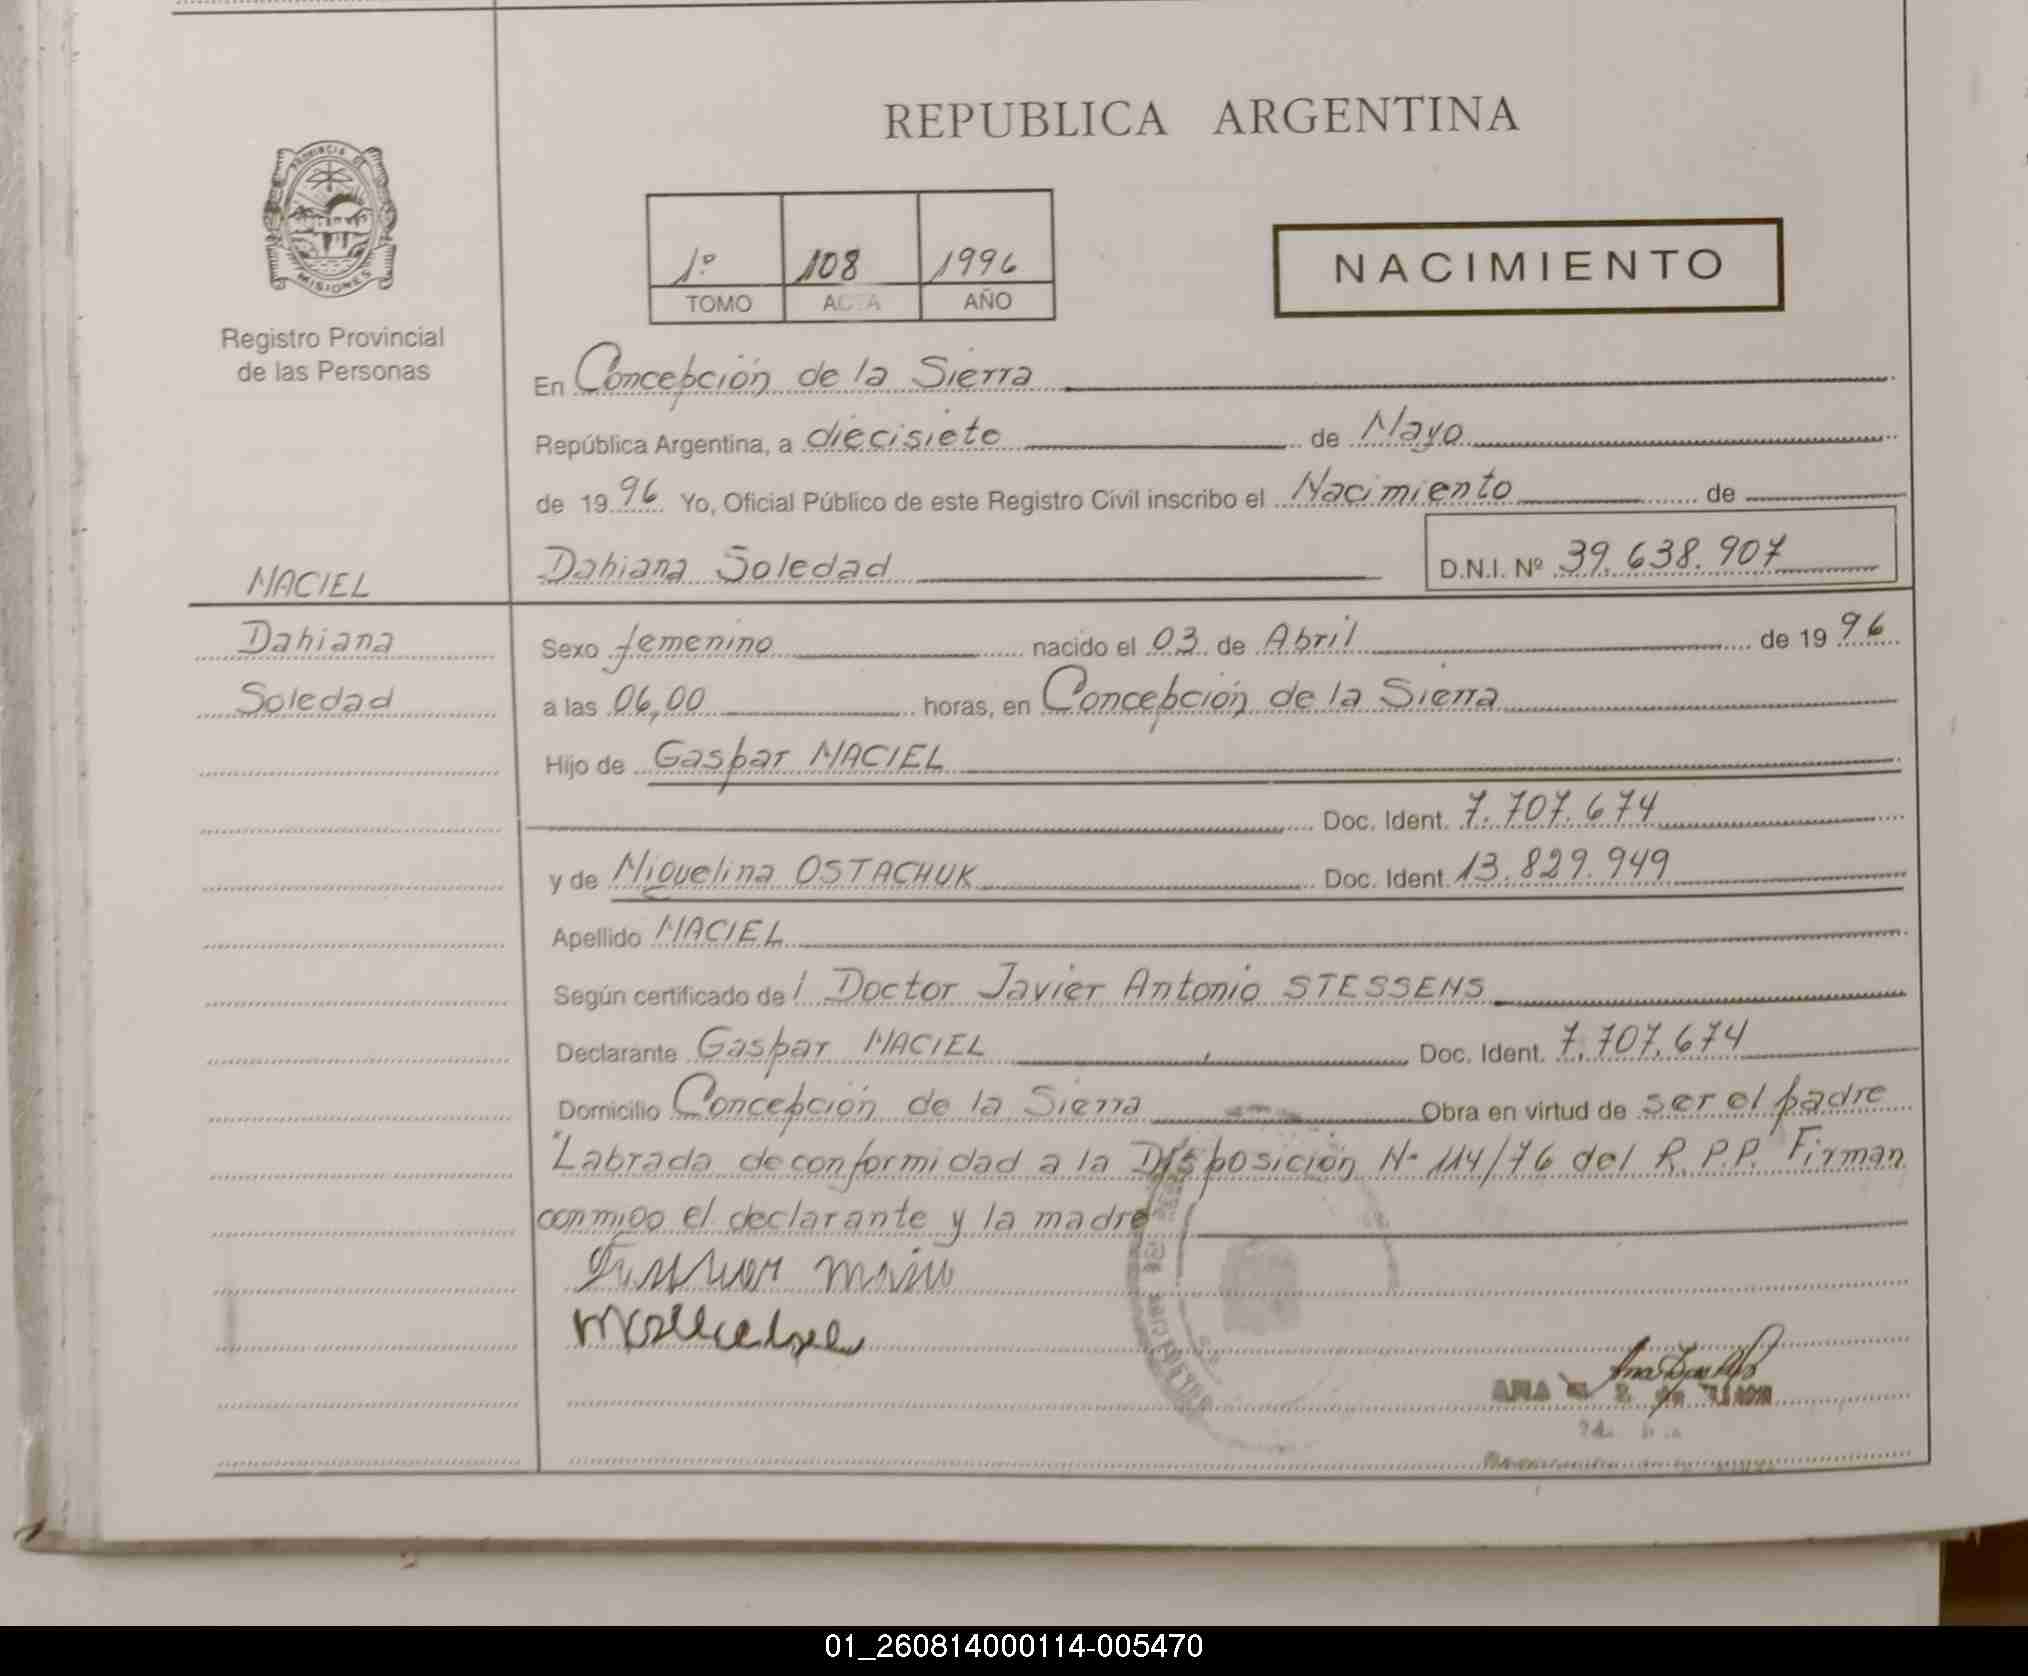 REPUBLICA ARGENTINA
PROVINCIA DE
MISIONES
Registro Provincial
de las Personas
1º 108 1996
TOMO ACTA AÑO
NACIMIENTO
En Concepción de la Sierra
República Argentina, a diecisiete de Mayo
de 1996 Yo, Oficial Público de este Registro Civil inscribo el Nacimiento de
Dahiana Soledad D.N.I. Nº 39.638.907
MACIEL
Dahiana
Soledad
Sexo femenino nacido el 03 de Abril de 1996
a las 06,00 horas, en Concepción de la Sierra
Hijo de Gaspar MACIEL
Doc. Ident. 7.707.674
y de Miquelina OSTACHUK Doc. Ident. 13.829.949
Apellido MACIEL
Según certificado del Doctor Javier Antonio STESSENS
Declarante Gaspar MACIEL Doc. Ident. 7.707.674
Domicilio Concepción de la Sierra Obra en virtud de ser el padre
"Labrada de conformidad a la Disposición N- 114/76 del R.P.P." Firman
conmigo el declarante y la madre
ANA
01_260814000114-005470